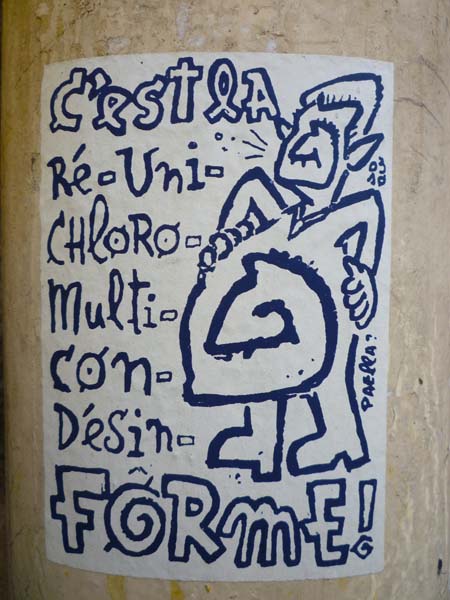 C'EST LA
Ré-Uni-
CHLORO-
Multi-
CON-
Désin-
FORME!
PAELLA?